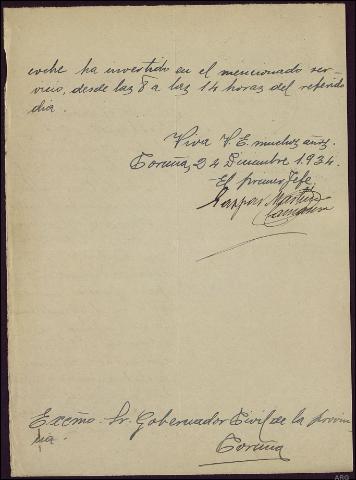 coche ha invertido en el mencionado ser-
vicio, desde las 8 a las 14 horas del referido
dia.
Viva V. E. muchos años.
Coruña, 24 Diciembre 1.934.
El primer Jefe,
Gaspar Martinez
Excmo. Sr. Gobernador Civil de la provin-
cia.
Coruña
ARG